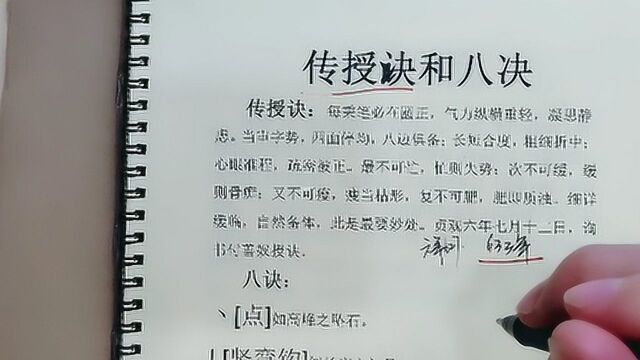 传授诀和八决
传授诀：每秉笔必在圆正，气力纵横重轻，凝思静
虑。当审字势，四面停均，八边俱备；长短合度，粗细折中；
心眼准程，疏密被正。最不可忙，忙则失势；次不可缓，缓
则骨痴；又不可瘦，瘦当枯形，复不可肥，肥即质浊。细详
缓临，自然备体，此是最要妙处。贞观六年七月十二日，询
书付善奴授诀。
632年
八诀：
丶[点]如高峰之坠石。
[竖弯钩]